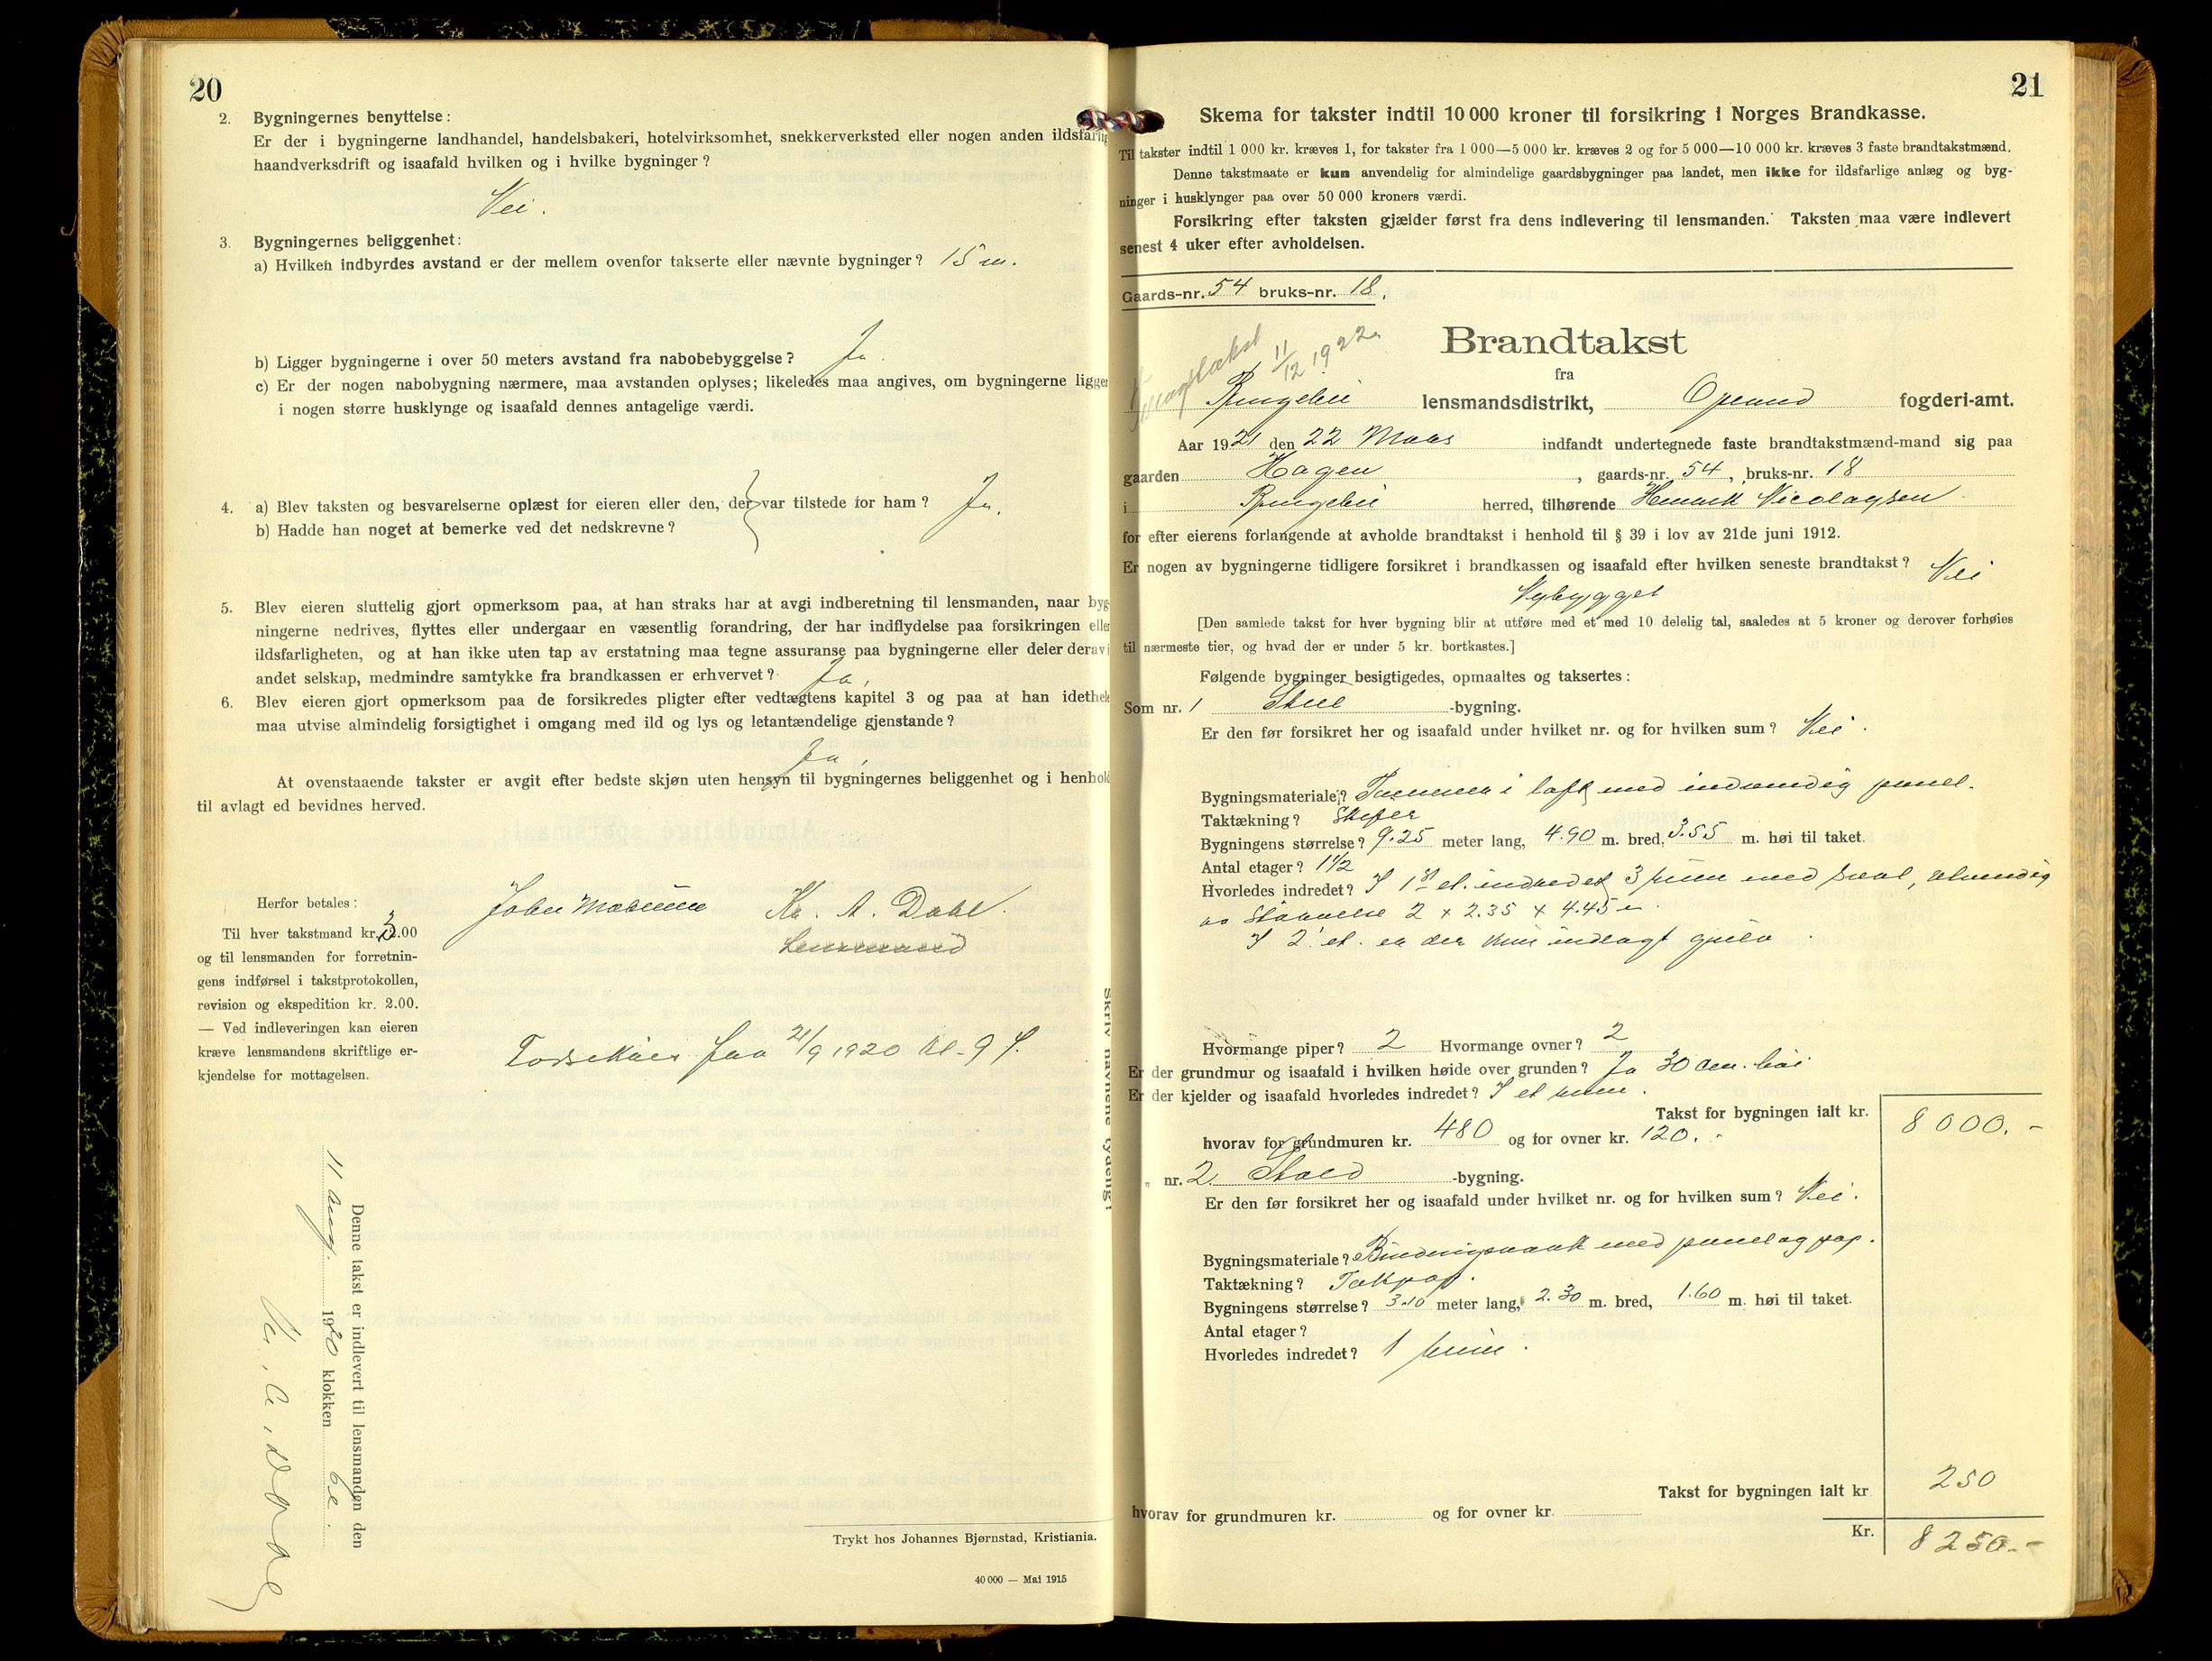 20
2. Bygningernes benyttelse:
Er der i bygningerne landhandel, handelsbakeri, hotelvirksomhet, snekkerverksted eller nogen anden ildsfarlig
haandverksdrift og isaafald hvilken og i hvilke bygninger?
Nei.
3. Bygningernes beliggenhet:
a) Hvilken indbyrdes avstand er der mellem ovenfor takserte eller nævnte bygninger? 15 m.
b) Ligger bygningerne i over 50 meters avstand fra nabobebyggelse? Ja.
c) Er der nogen nabobygning nærmere, maa avstanden oplyses; likeledes maa angives, om bygningerne ligger
i nogen større husklynge og isaafald dennes antagelige værdi.
4. a) Blev taksten og besvarelserne oplæst for eieren eller den, der var tilstede for ham? Ja.
b) Hadde han noget at bemerke ved det nedskrevne?
5. Blev eieren sluttelig gjort opmerksom paa, at han straks har at avgi indberetning til lensmanden, naar byg-
ningerne nedrives, flyttes eller undergaar en væsentlig forandring, der har indflydelse paa forsikringen eller
ildsfarligheten, og at han ikke uten tap av erstatning maa tegne assuranse paa bygningerne eller deler derav i
andet selskap, medmindre samtykke fra brandkassen er erhvervet? Ja,
6. Blev eieren gjort opmerksom paa de forsikredes pligter efter vedtægtens kapitel 3 og paa at han idethele
maa utvise almindelig forsigtighet i omgang med ild og lys og letantændelige gjenstande?
Ja,
At ovenstaaende takster er avgit efter bedste skjøn uten hensyn til bygningernes beliggenhet og i henhold
til avlagt ed bevidnes herved.
Herfor betales:
Til hver takstmand kr. 3.00
og til lensmanden for forretnin-
gens indførsel i takstprotokollen,
revision og ekspedition kr. 2.00.
— Ved indleveringen kan eieren
kræve lensmandens skriftlige er-
kjendelse for mottagelsen.
John K. A. Dahl.
Lensmand
faa 21/9 1920 kl. 9 f.
Denne takst er indlevert til lensmanden den
11 Aug. 1920 klokken 6 e.
Skriv navnene tydelig!
Trykt hos Johannes Bjørnstad, Kristiania.
40 000 — Mai 1915
21
Skema for takster indtil 10 000 kroner til forsikring i Norges Brandkasse.
Til takster indtil 1 000 kr. kræves 1, for takster fra 1 000—5 000 kr. kræves 2 og for 5 000—10 000 kr. kræves 3 faste brandtakstmænd.
Denne takstmaate er kun anvendelig for almindelige gaardsbygninger paa landet, men ikke for ildsfarlige anlæg og byg-
ninger i husklynger paa over 50 000 kroners værdi.
Forsikring efter taksten gjælder først fra dens indlevering til lensmanden. Taksten maa være indlevert
senest 4 uker efter avholdelsen.
Gaards-nr. 54 bruks-nr. 18.
11/12 1922
Brandtakst
fra
Ringebu lensmandsdistrikt, Opland fogderi-amt.
Aar 1921 den 22 Mars indfandt undertegnede faste brandtakstmænd-mand sig paa
gaarden Hagen, gaards-nr. 54, bruks-nr. 18
i Ringebu herred, tilhørende Henrik Nicolaysen
for efter eierens forlangende at avholde brandtakst i henhold til § 39 i lov av 21de juni 1912.
Er nogen av bygningerne tidligere forsikret i brandkassen og isaafald efter hvilken seneste brandtakst? Nei
Nybygget
[Den samlede takst for hver bygning blir at utføre med et med 10 delelig tal, saaledes at 5 kroner og derover forhøies
til nærmeste tier, og hvad der er under 5 kr. bortkastes.]
Følgende bygninger besigtigedes, opmaaltes og taksertes:
Som nr. 1 -bygning.
Er den før forsikret her og isaafald under hvilket nr. og for hvilken sum? Nei.
Bygningsmateriale? Tømmer i laft med indvendig panel.
Taktækning? Skifer
Bygningens størrelse? 9.25 meter lang, 4.90 m. bred, 3.55 m. høi til taket.
Antal etager? 1 1/2
Hvorledes indredet? I 1ste et. indredet 3 rum med sval, utvendig
av Størrelse 2 x 2.35 x 4.45 m.
I 2. et. er der kun indlagt gulv.
Hvormange piper? 2 Hvormange ovner? 2
Er der grundmur og isaafald i hvilken høide over grunden? Ja 30 cm. høi
Er der kjelder og isaafald hvorledes indredet? I et rum.
Takst for bygningen ialt kr. 8000.-
hvorav for grundmuren kr. 480 og for ovner kr. 120.-
„ nr. 2 Stald -bygning.
Er den før forsikret her og isaafald under hvilket nr. og for hvilken sum? Nei.
Bygningsmateriale? Bindingsverk med panel og pap.
Taktækning? Takpap.
Bygningens størrelse? 3.10 meter lang, 2.30 m. bred, 1.60 m. høi til taket.
Antal etager?
Hvorledes indredet? 1 rum.
Takst for bygningen ialt kr 250
hvorav for grundmuren kr. og for ovner kr.
Kr. 8250.-